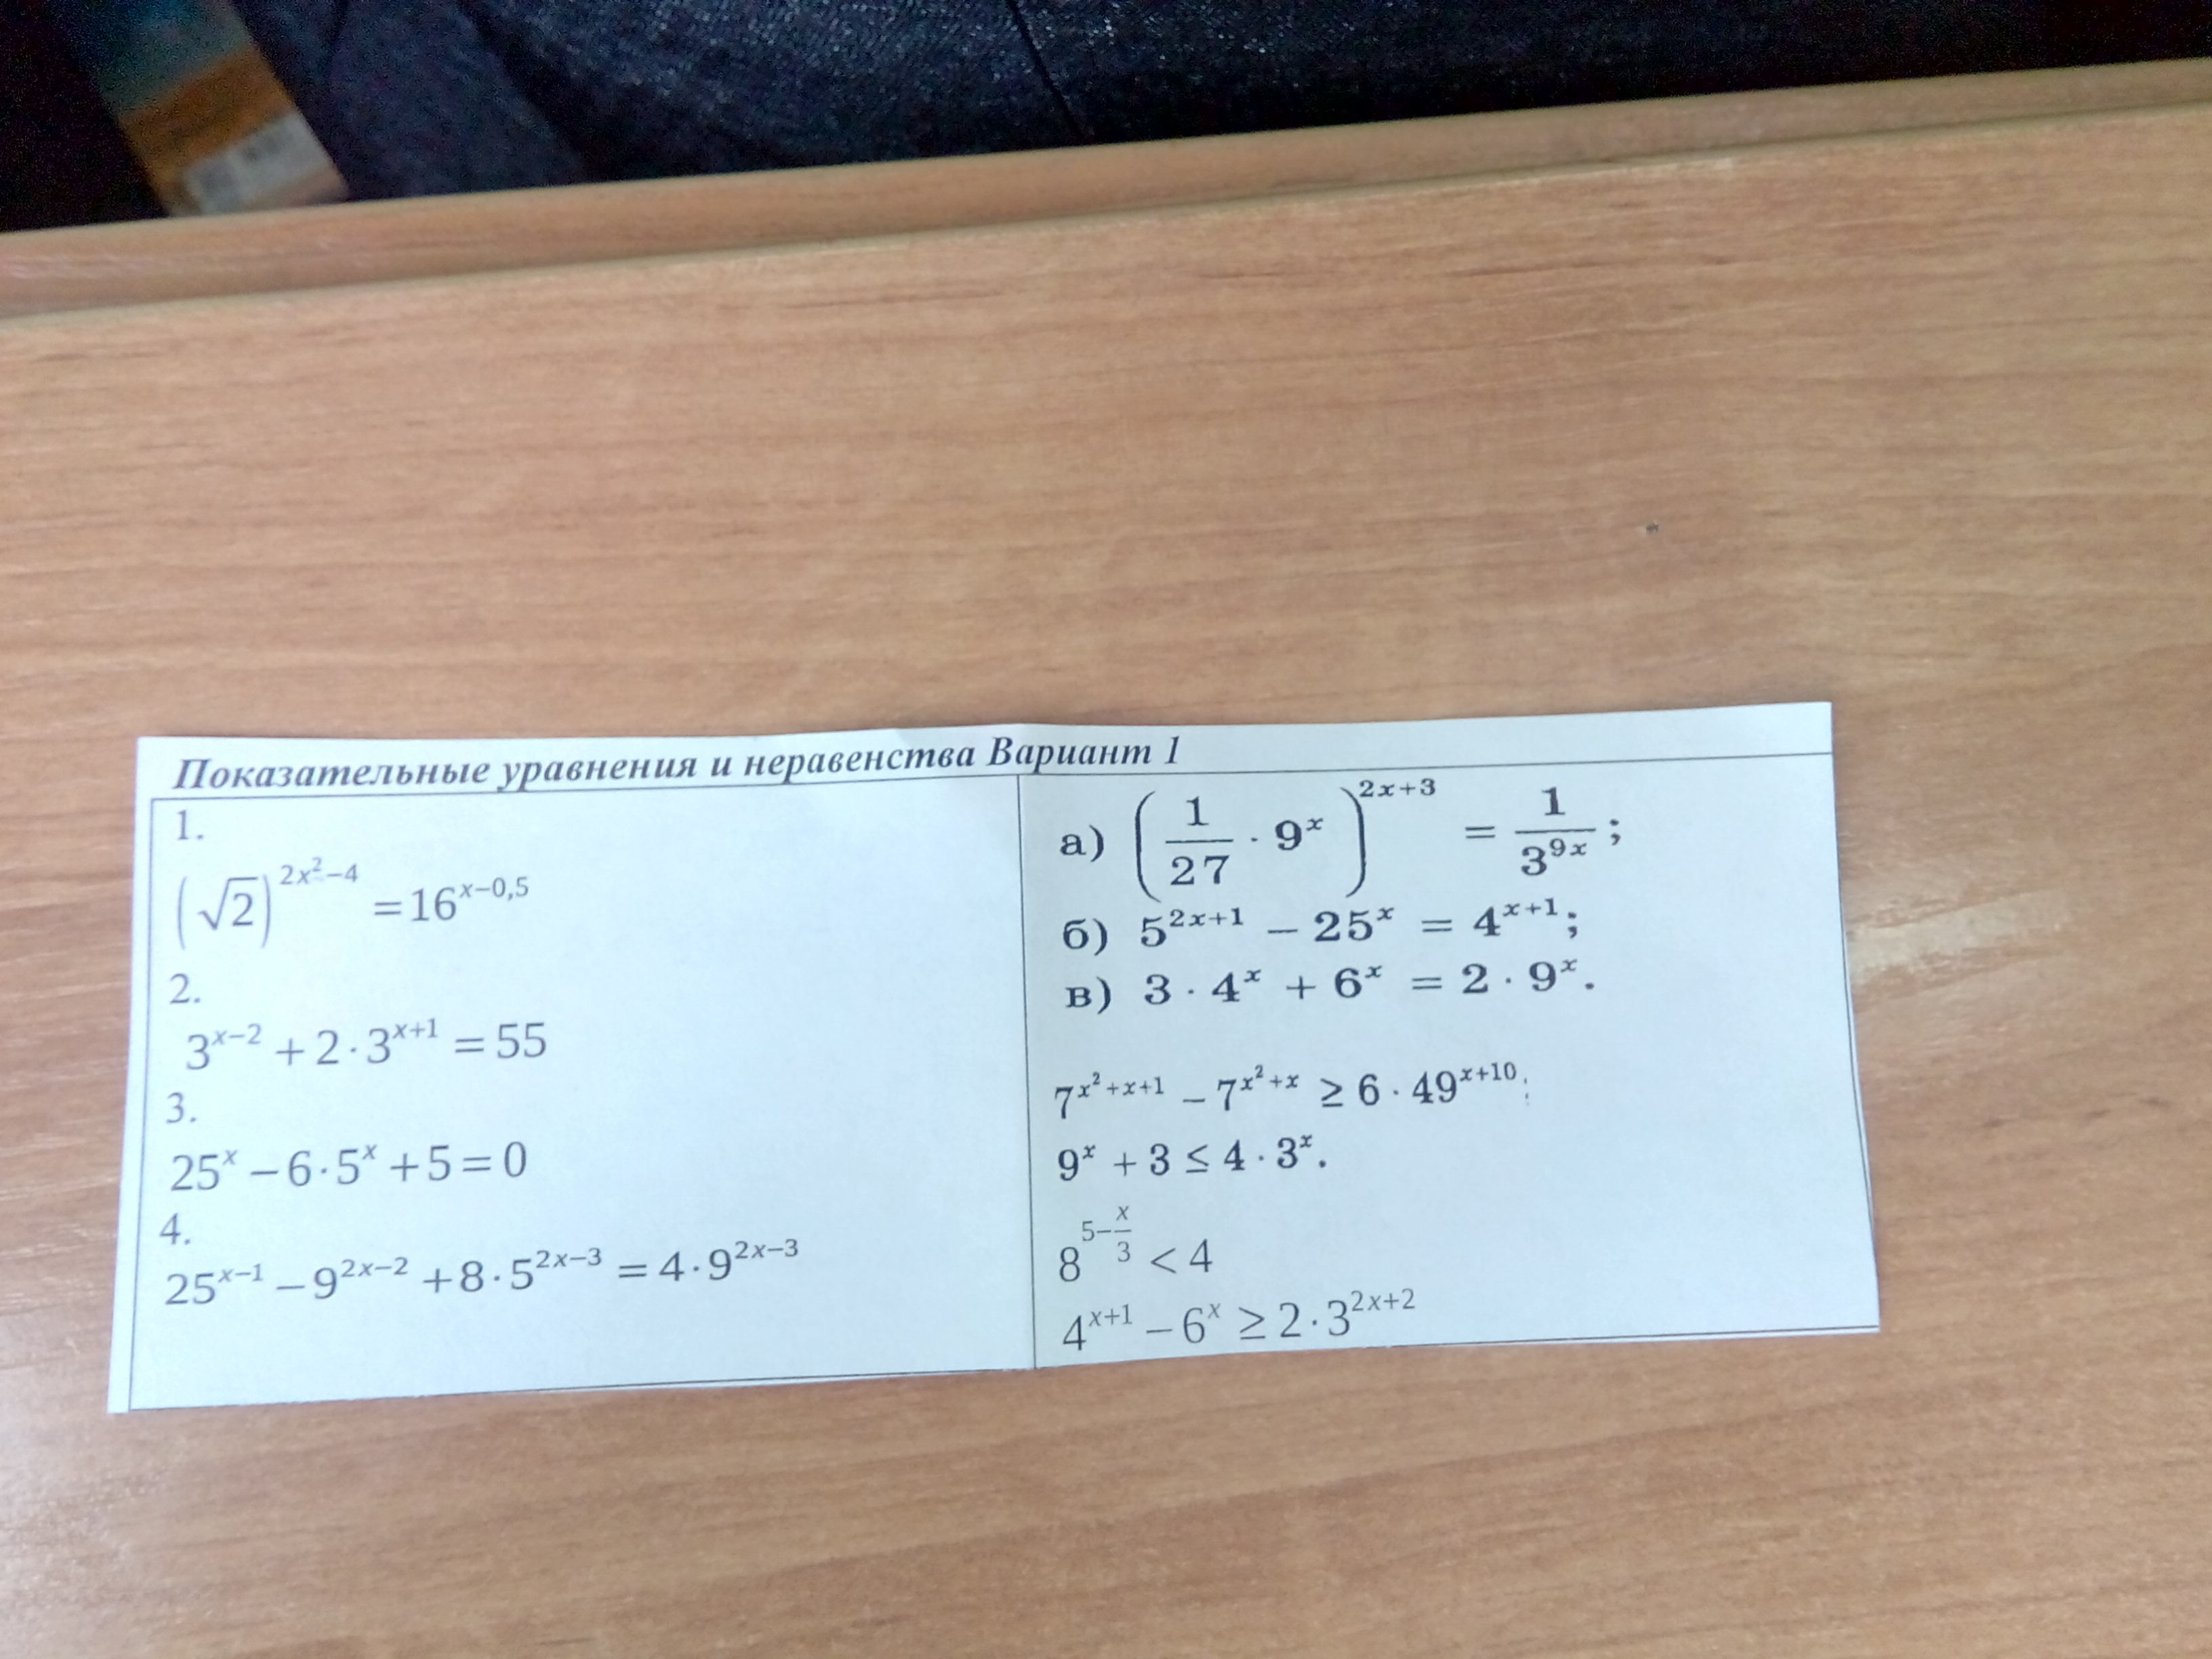 Показательные уравнения и неравенства Вариант 1
1.
(√2)^(2x²−4) = 16^(x−0,5)
2.
3^(x−2) + 2·3^(x+1) = 55
3.
25^x − 6·5^x + 5 = 0
4.
25^(x−1) − 9^(2x−2) + 8·5^(2x−3) = 4·9^(2x−3)
а) (1/27 · 9^x)^(2x+3) = 1/3^(9x);
б) 5^(2x+1) − 25^x = 4^(x+1);
в) 3 · 4^x + 6^x = 2 · 9^x.
7^(x²+x+1) − 7^(x²+x) ≥ 6 · 49^(x+10);
9^x + 3 ≤ 4 · 3^x.
8^(5−x/3) < 4
4^(x+1) − 6^x ≥ 2·3^(2x+2)